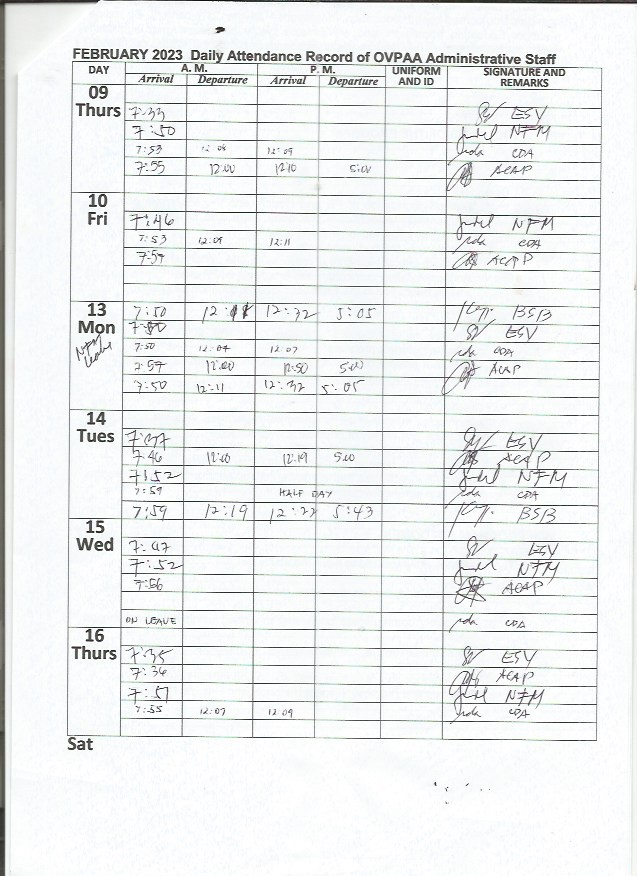 FEBRUARY 2023 Daily Attendance Record of OVPAA Administrative Staff
DAY A. M. P. M. UNIFORM AND ID SIGNATURE AND REMARKS
Arrival Departure Arrival Departure
09 Thurs
7:33 ESV
7:50 NFM
7:53 12:08 12:09 CDA
7:55 12:00 12:10 5:00 ACAP
10 Fri
7:46 NFM
7:53 12:09 12:11 CDA
7:59 ACAP
13 Mon
7:50 12:32 5:05 BSB
ESV
NFM Leave
7:50 12:04 12:07 CDA
7:57 12:00 12:50 5:00 ACAP
7:50 12:11 12:32 5:05
14 Tues
7:37 ESV
7:46 12:00 12:19 5:00 ACAP
7:52 NFM
7:59 HALF DAY CDA
7:59 12:19 12:22 5:43 BSB
15 Wed
7:47 ESV
7:52 NFM
7:56 ACAP
ON LEAVE CDA
16 Thurs
7:35 ESV
7:36 ACAP
7:51 NFM
7:55 12:07 12:09 CDA
Sat